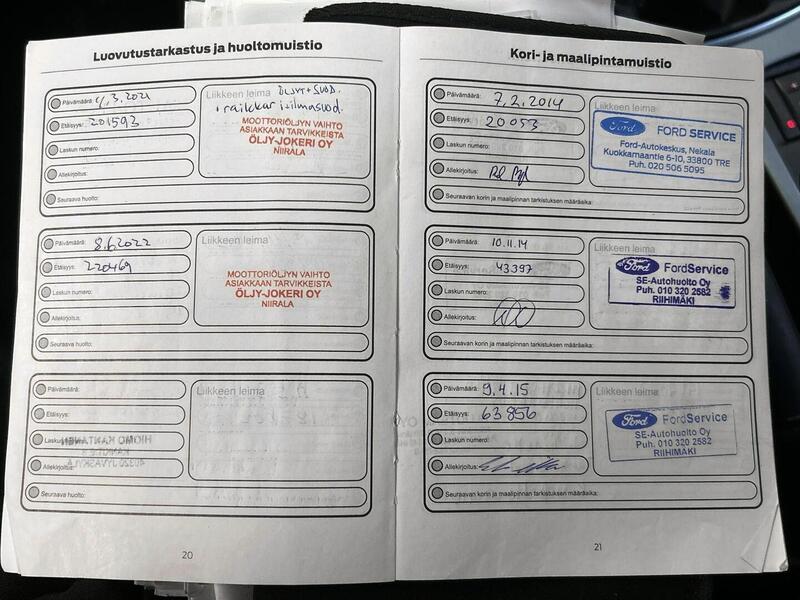 Luovutustarkastus ja huoltomuistio
Päivämäärä: 4.3.2021
Etäisyys: 201593
Laskun numero:
Allekirjoitus:
Seuraava huolto:
Liikkeen leima ÖLJYT + SUOD.
+ raitekkar isilmasuod.
MOOTTORIÖLJYN VAIHTO
ASIAKKAAN TARVIKKEISTA
ÖLJY-JOKERI OY
NIIRALA
Päivämäärä: 8.6.2022
Etäisyys: 220469
Laskun numero:
Allekirjoitus:
Seuraava huolto:
Liikkeen leima
MOOTTORIÖLJYN VAIHTO
ASIAKKAAN TARVIKKEISTA
ÖLJY-JOKERI OY
NIIRALA
Päivämäärä:
Etäisyys:
Laskun numero:
Allekirjoitus:
Seuraava huolto:
Liikkeen leima
20
Kori- ja maalipintamuistio
Päivämäärä: 7.2.2014
Etäisyys: 20053
Laskun numero:
Allekirjoitus:
Seuraavan korin ja maalipinnan tarkistuksen määräaika:
Liikkeen leima
Ford FORD SERVICE
Ford-Autokeskus, Nekala
Kuokkamaantie 6-10, 33800 TRE
Puh. 020 506 5095
Päivämäärä: 10.11.14
Etäisyys: 43397
Laskun numero:
Allekirjoitus:
Seuraavan korin ja maalipinnan tarkistuksen määräaika:
Liikkeen leima
Ford FordService
SE-Autohuolto Oy
Puh. 010 320 2582
RIIHIMÄKI
Päivämäärä: 9.4.15
Etäisyys: 63856
Laskun numero:
Allekirjoitus:
Seuraavan korin ja maalipinnan tarkistuksen määräaika:
Liikkeen leima
Ford FordService
SE-Autohuolto Oy
Puh. 010 320 2582
RIIHIMÄKI
21